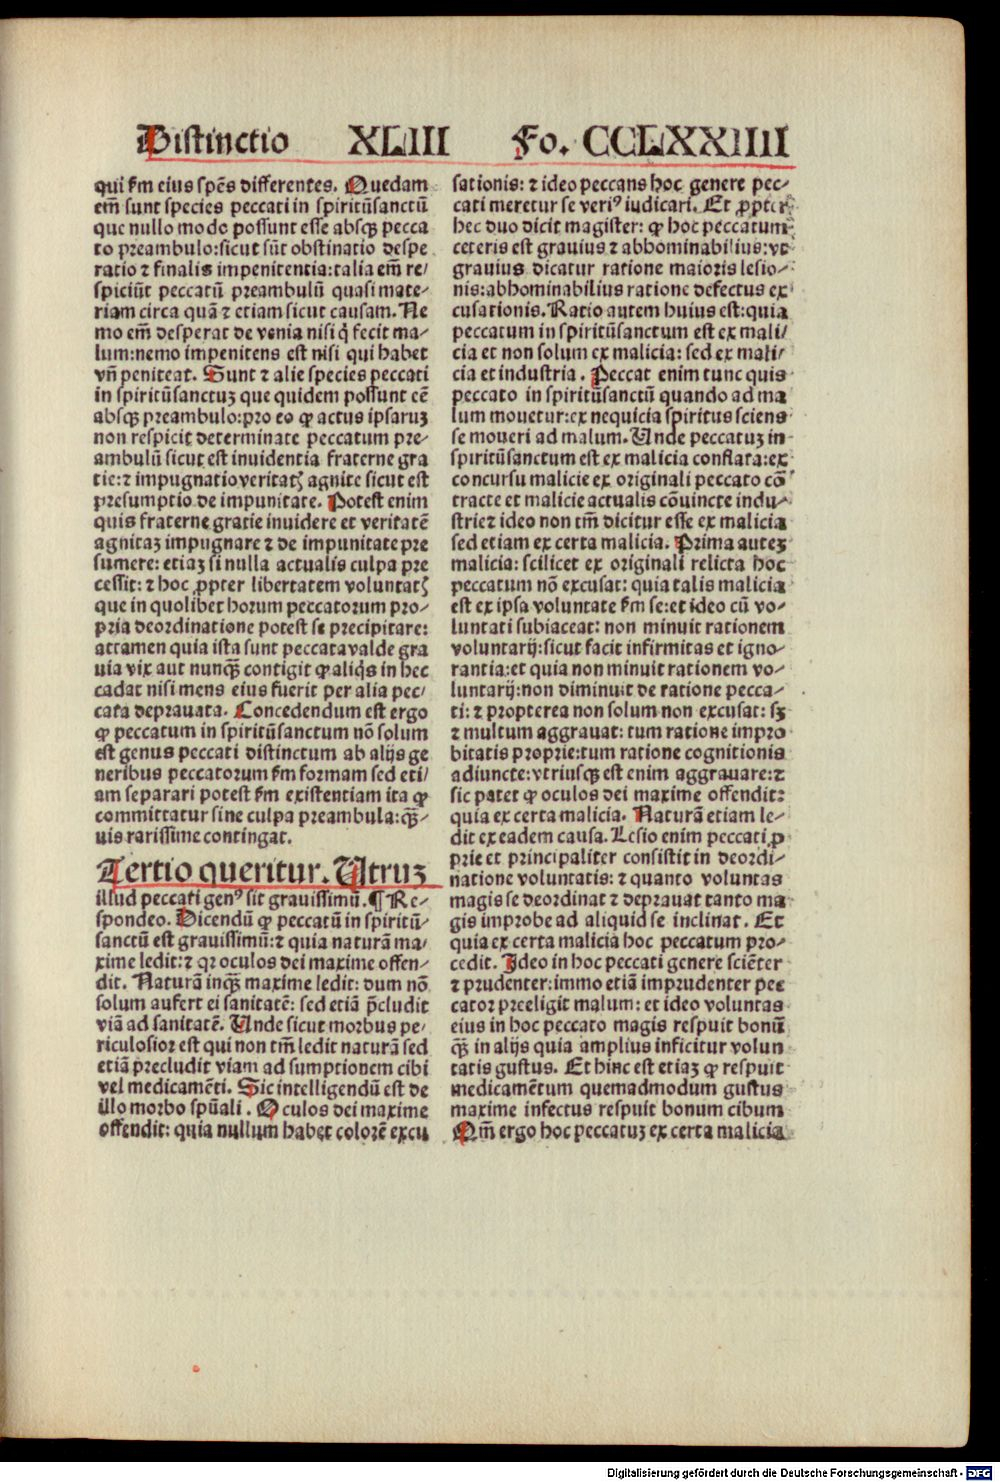 Distinctio XLIII Fo. CCLXXIIII
qui ſm eius spēs differentes. Quedam
em̄ sunt species peccati in spiritūsanctū
que nullo modo possunt esse absqꝫ pecca
to preambulo: sicut sūt obstinatio despe
ratio ⁊ finalis impenitentia: talia em̄ re/
spiciūt peccatū preambulū quasi mate/
riam circa quā ⁊ etiam sicut causam. Ne
mo em̄ desperat de venia nisi ꝙ̄ fecit ma/
lum: nemo impenitens est nisi qui habet
vn̄ peniteat. Sunt ⁊ alie species peccati
in spiritūsanctuꝫ que quidem possunt eē
absqꝫ preambulo: pro eo ꝙ actus ipsaruꝫ
non respicit determinate peccatum pre/
ambulū sicut est inuidentia fraterne gra
tie: ⁊ impugnatio veritatꝭ agnite sicut est
presumptio de impunitate. Potest enim
quis fraterne gratie inuidere et veritatē
agnitaꝫ impugnare ⁊ de impunitate pre
sumere: etiaꝫ si nulla actualis culpa pre
cessit: ⁊ hoc ꝓpter libertatem voluntatꝭ
que in quolibet horum peccatorum pro/
pria deordinatione potest se precipitare:
attamen quia ista sunt peccata valde gra
uia vix aut nunqꝫ̄ contigit ꝙ aliq̇s in hec
cadat nisi mens eius fuerit per alia pec/
cata deprauata. Concedendum est ergo
ꝙ peccatum in spiritūsanctum nō solum
est genus peccati distinctum ab alijs ge
neribus peccatorum ſm formam sed eti/
am separari potest ſm existentiam ita ꝙ
committatur sine culpa preambula: qꝫ̄/
uis rarissime contingat.
Tertio queritur. Utruꝫ
illud peccati genꝰ sit grauissimū. ¶ Re/
spondeo. Dicendū ꝙ peccatū in spiritū/
sanctū est grauissimū: ⁊ quia naturā ma/
xime ledit: ⁊ qꝛ oculos dei maxime offen/
dit. Naturā inqꝫ̄ maxime ledit: dum nō
solum aufert ei sanitatē: sed etiā p̄cludit
viā ad sanitatē. Unde sicut morbus pe/
riculosior est qui non tm̄ ledit naturā sed
etiā precludit viam ad sumptionem cibi
vel medicamēti. Sic intelligendū est de
illo morbo spūali. Oculos dei maxime
offendit: quia nullum habet colorē excu
sationis: ⁊ ideo peccans hoc genere pec/
cati meretur se veriꝰ iudicari. Et ꝓpter
hec duo dicit magister: ꝙ hoc peccatum
ceteris est grauius ⁊ abhominabilius: vt
grauius dicatur ratione maioris lesio/
nis: abhominabilius ratione defectus ex
cusationis. Ratio autem huius est: quia
peccatum in spiritūsanctum est ex mali/
cia et non solum ex malicia: sed ex mali/
cia et industria. Peccat enim tunc quis
peccato in spiritūsanctū quando ad ma
lum mouetur: ex nequicia spiritus sciens
se moueri ad malum. Unde peccatuꝫ in
spiritūsanctum est ex malicia conflata: ex
concursu malicie ex originali peccato cō
tracte et malicie actualis cōuincte indu/
strie⁊ ideo non tm̄ dicitur esse ex malicia
sed etiam ex certa malicia. Prima auteꝫ
malicia: scilicet ex originali relicta hoc
peccatum nō excusat: quia talis malicia
est ex ipsa voluntate ſm se: et ideo cū vo/
luntati subiaceat: non minuit rationem
voluntarij: sicut facit infirmitas et igno/
rantia: et quia non minuit rationem vo/
luntarij: non diminuit de ratione pecca/
ti: ⁊ propterea non solum non excusat: sꝫ
⁊ multum aggrauat: tum ratione impro
bitatis proprie: tum ratione cognitionis
adiuncte: vtriusqꝫ est enim aggrauare: ⁊
sic patet ꝙ oculos dei maxime offendit:
quia ex certa malicia. Naturā etiam le/
dit ex eadem causa. Lesio enim peccati ꝓ
prie et principaliter consistit in deordi/
natione voluntatis: ⁊ quanto voluntas
magis se deordinat ⁊ deprauat tanto ma
gis improbe ad aliquid se inclinat. Et
quia ex certa malicia hoc peccatum pro/
cedit. Ideo in hoc peccati genere sciēter
⁊ prudenter: immo etiam imprudenter pec
cator preeligit malum: et ideo voluntas
eius in hoc peccato magis respuit bonū
qꝫ̄ in alijs quia amplius inficitur volun
tatis gustus. Et hinc est etiaꝫ ꝙ respuit
medicamētum quemadmodum gustus
maxime infectus respuit bonum cibum
Qm̄ ergo hoc peccatuꝫ ex certa malicia
Digitalisierung gefördert durch die Deutsche Forschungsgemeinschaft - DFG